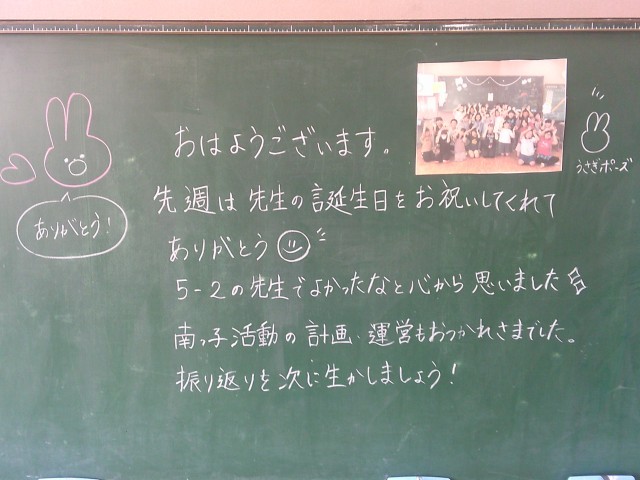 おはようございます。
うさぎポーズ
ありがとう!
先週は先生の誕生日をお祝いしてくれて
ありがとう
5-2の先生でよかったなと心から思いました
南っ子活動の計画・運営もおつかれさまでした。
振り返りを次に生かしましょう!